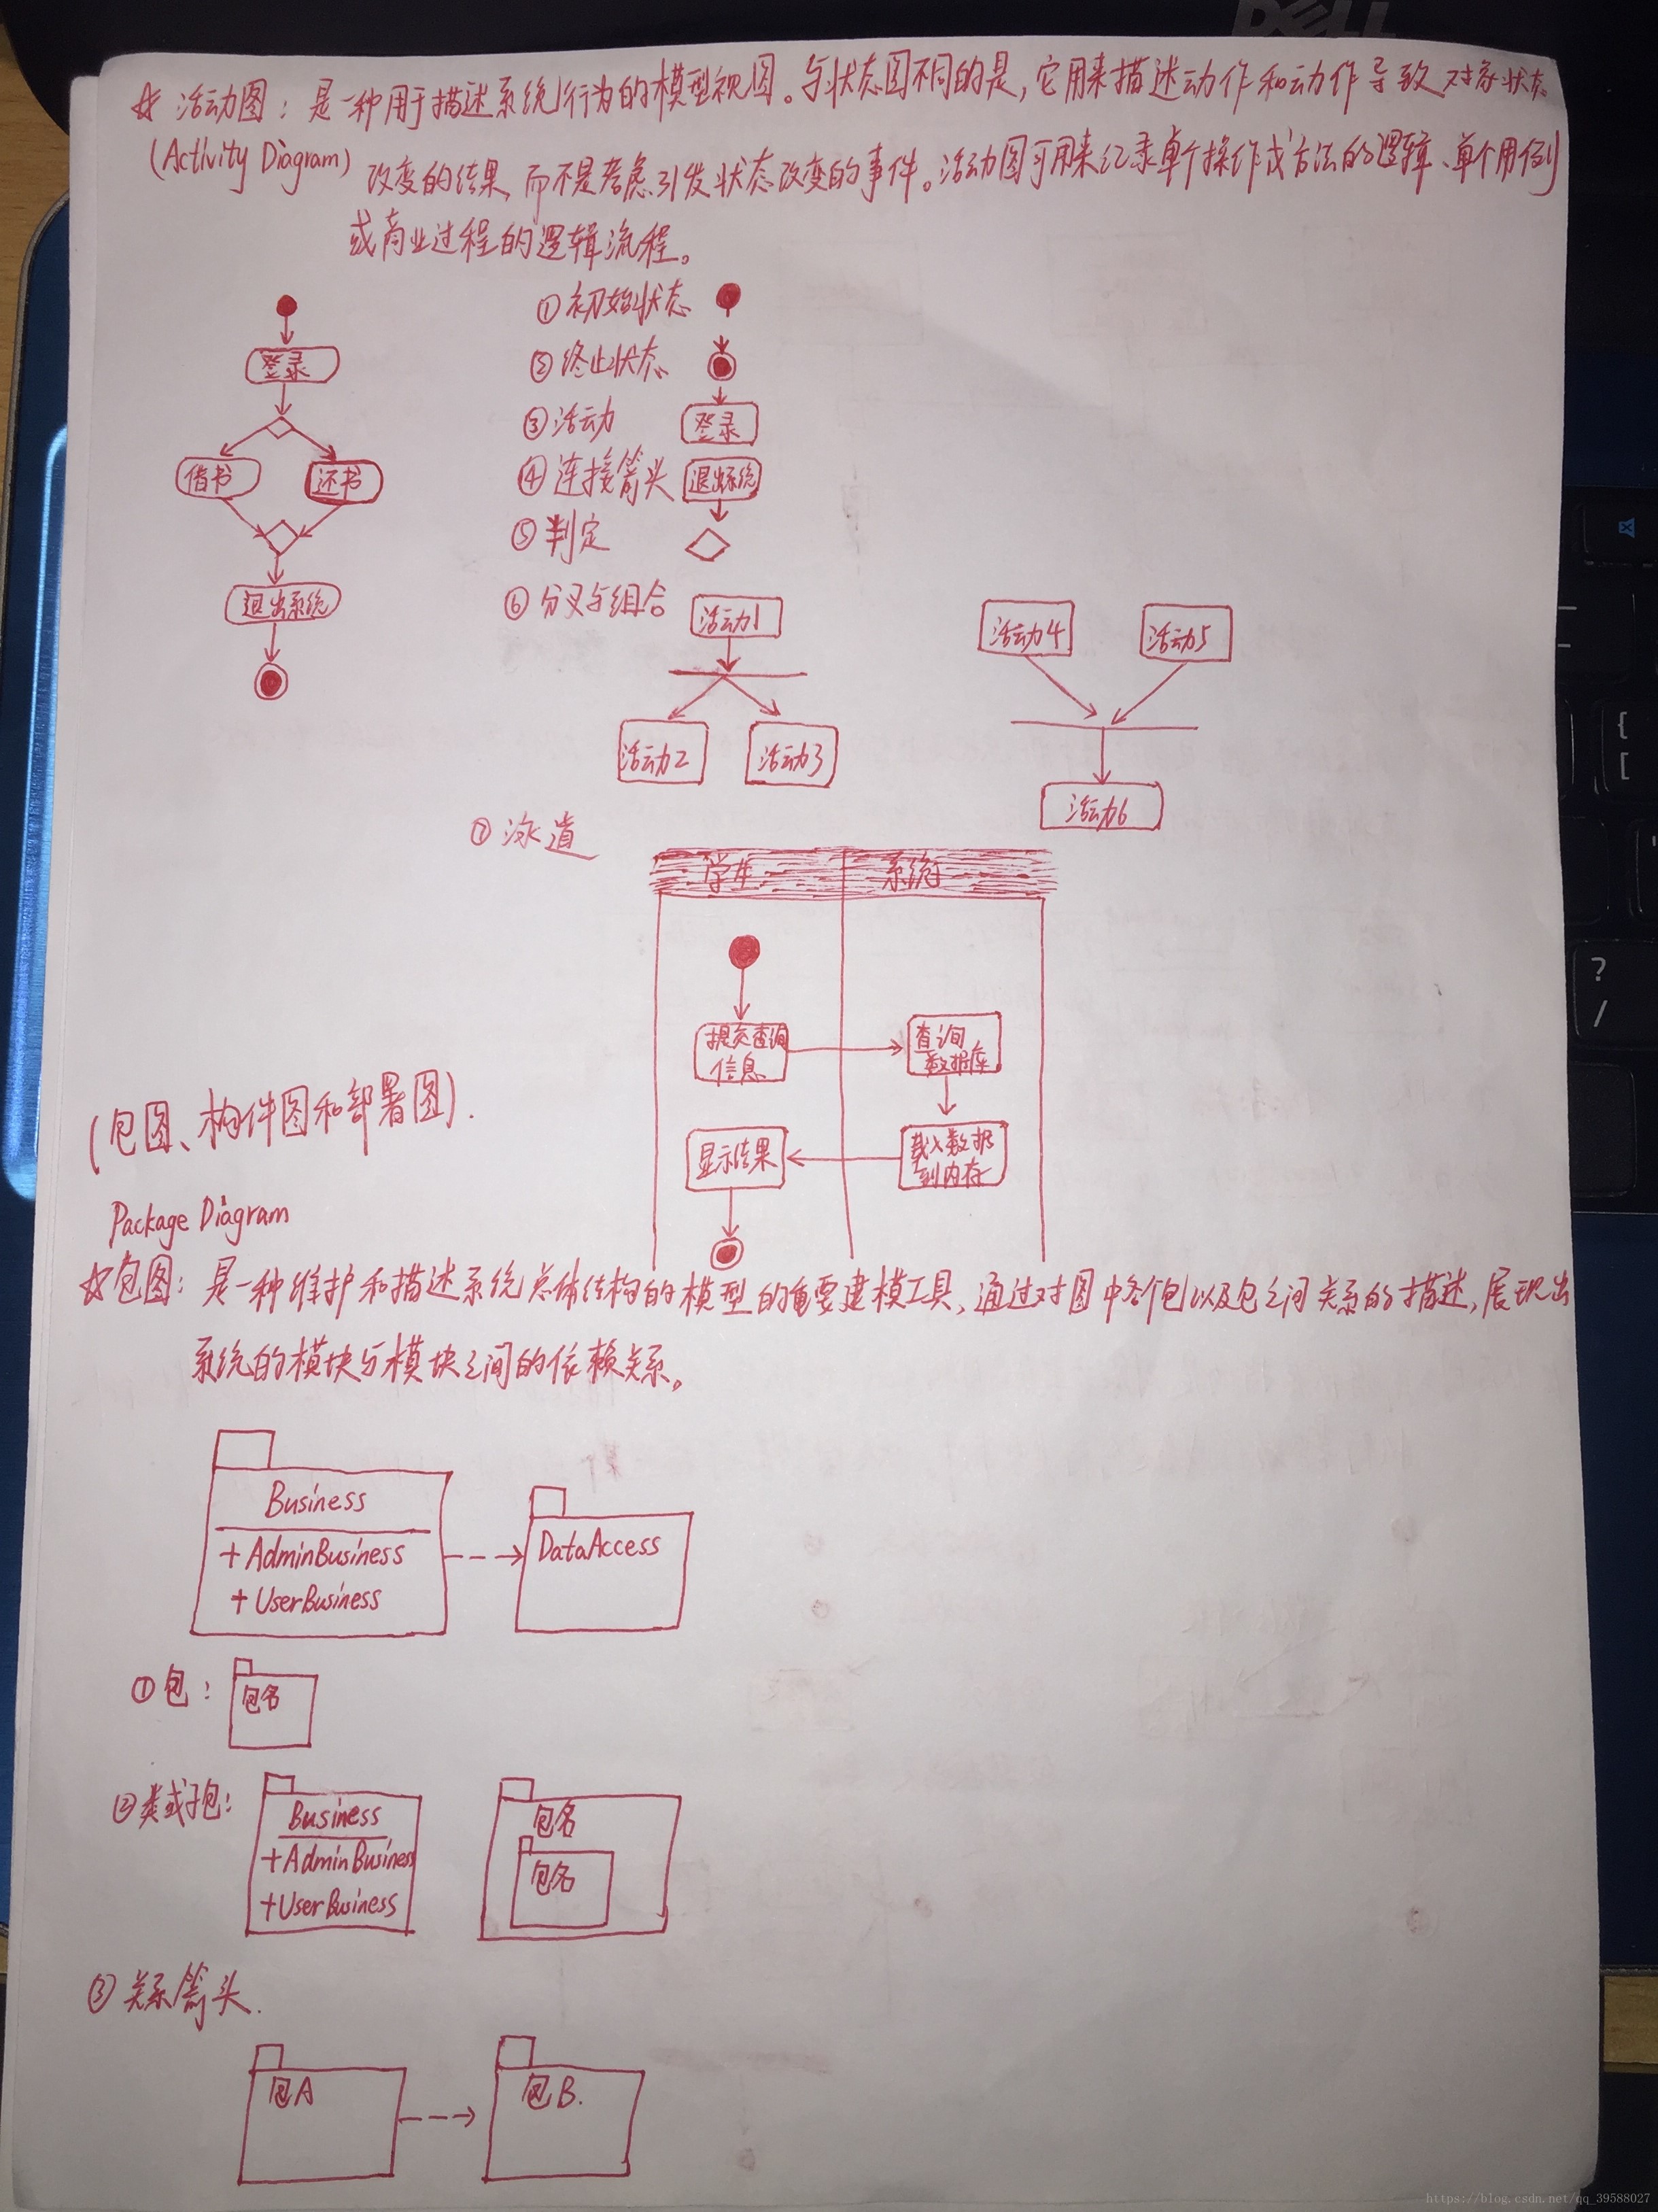 DELL
☆ 活动图：是一种用于描述系统行为的模型视图。与状态图不同的是，它用来描述动作和动作导致对象状态
(Activity Diagram) 改变的结果，而不是考虑引发状态改变的事件。活动图可用来记录单个操作或方法的逻辑、单个用例
或商业过程的逻辑流程。
登录
借书 还书
退出系统
①初始状态
②终止状态
③活动 登录
④连接箭头 退出系统
⑤判定
⑥分叉与组合 活动1 活动4 活动5
活动2 活动3
活动6
⑦泳道
学生 系统
提交查询
信息
查询
数据库
显示结果
载入数据
到内存
(包图、构件图和部署图).
Package Diagram
☆包图：是一种维护和描述系统总体结构的模型的重要建模工具，通过对图中各个包以及包之间关系的描述，展现出
系统的模块与模块之间的依赖关系。
Business
+AdminBusiness
+UserBusiness
DataAccess
①包：
包名
②类或子包：
Business
+AdminBusiness
+UserBusiness
包名
包名
③关系箭头.
包A 包B.
{
[
?
/
https://blog.csdn.net/qq_39588027